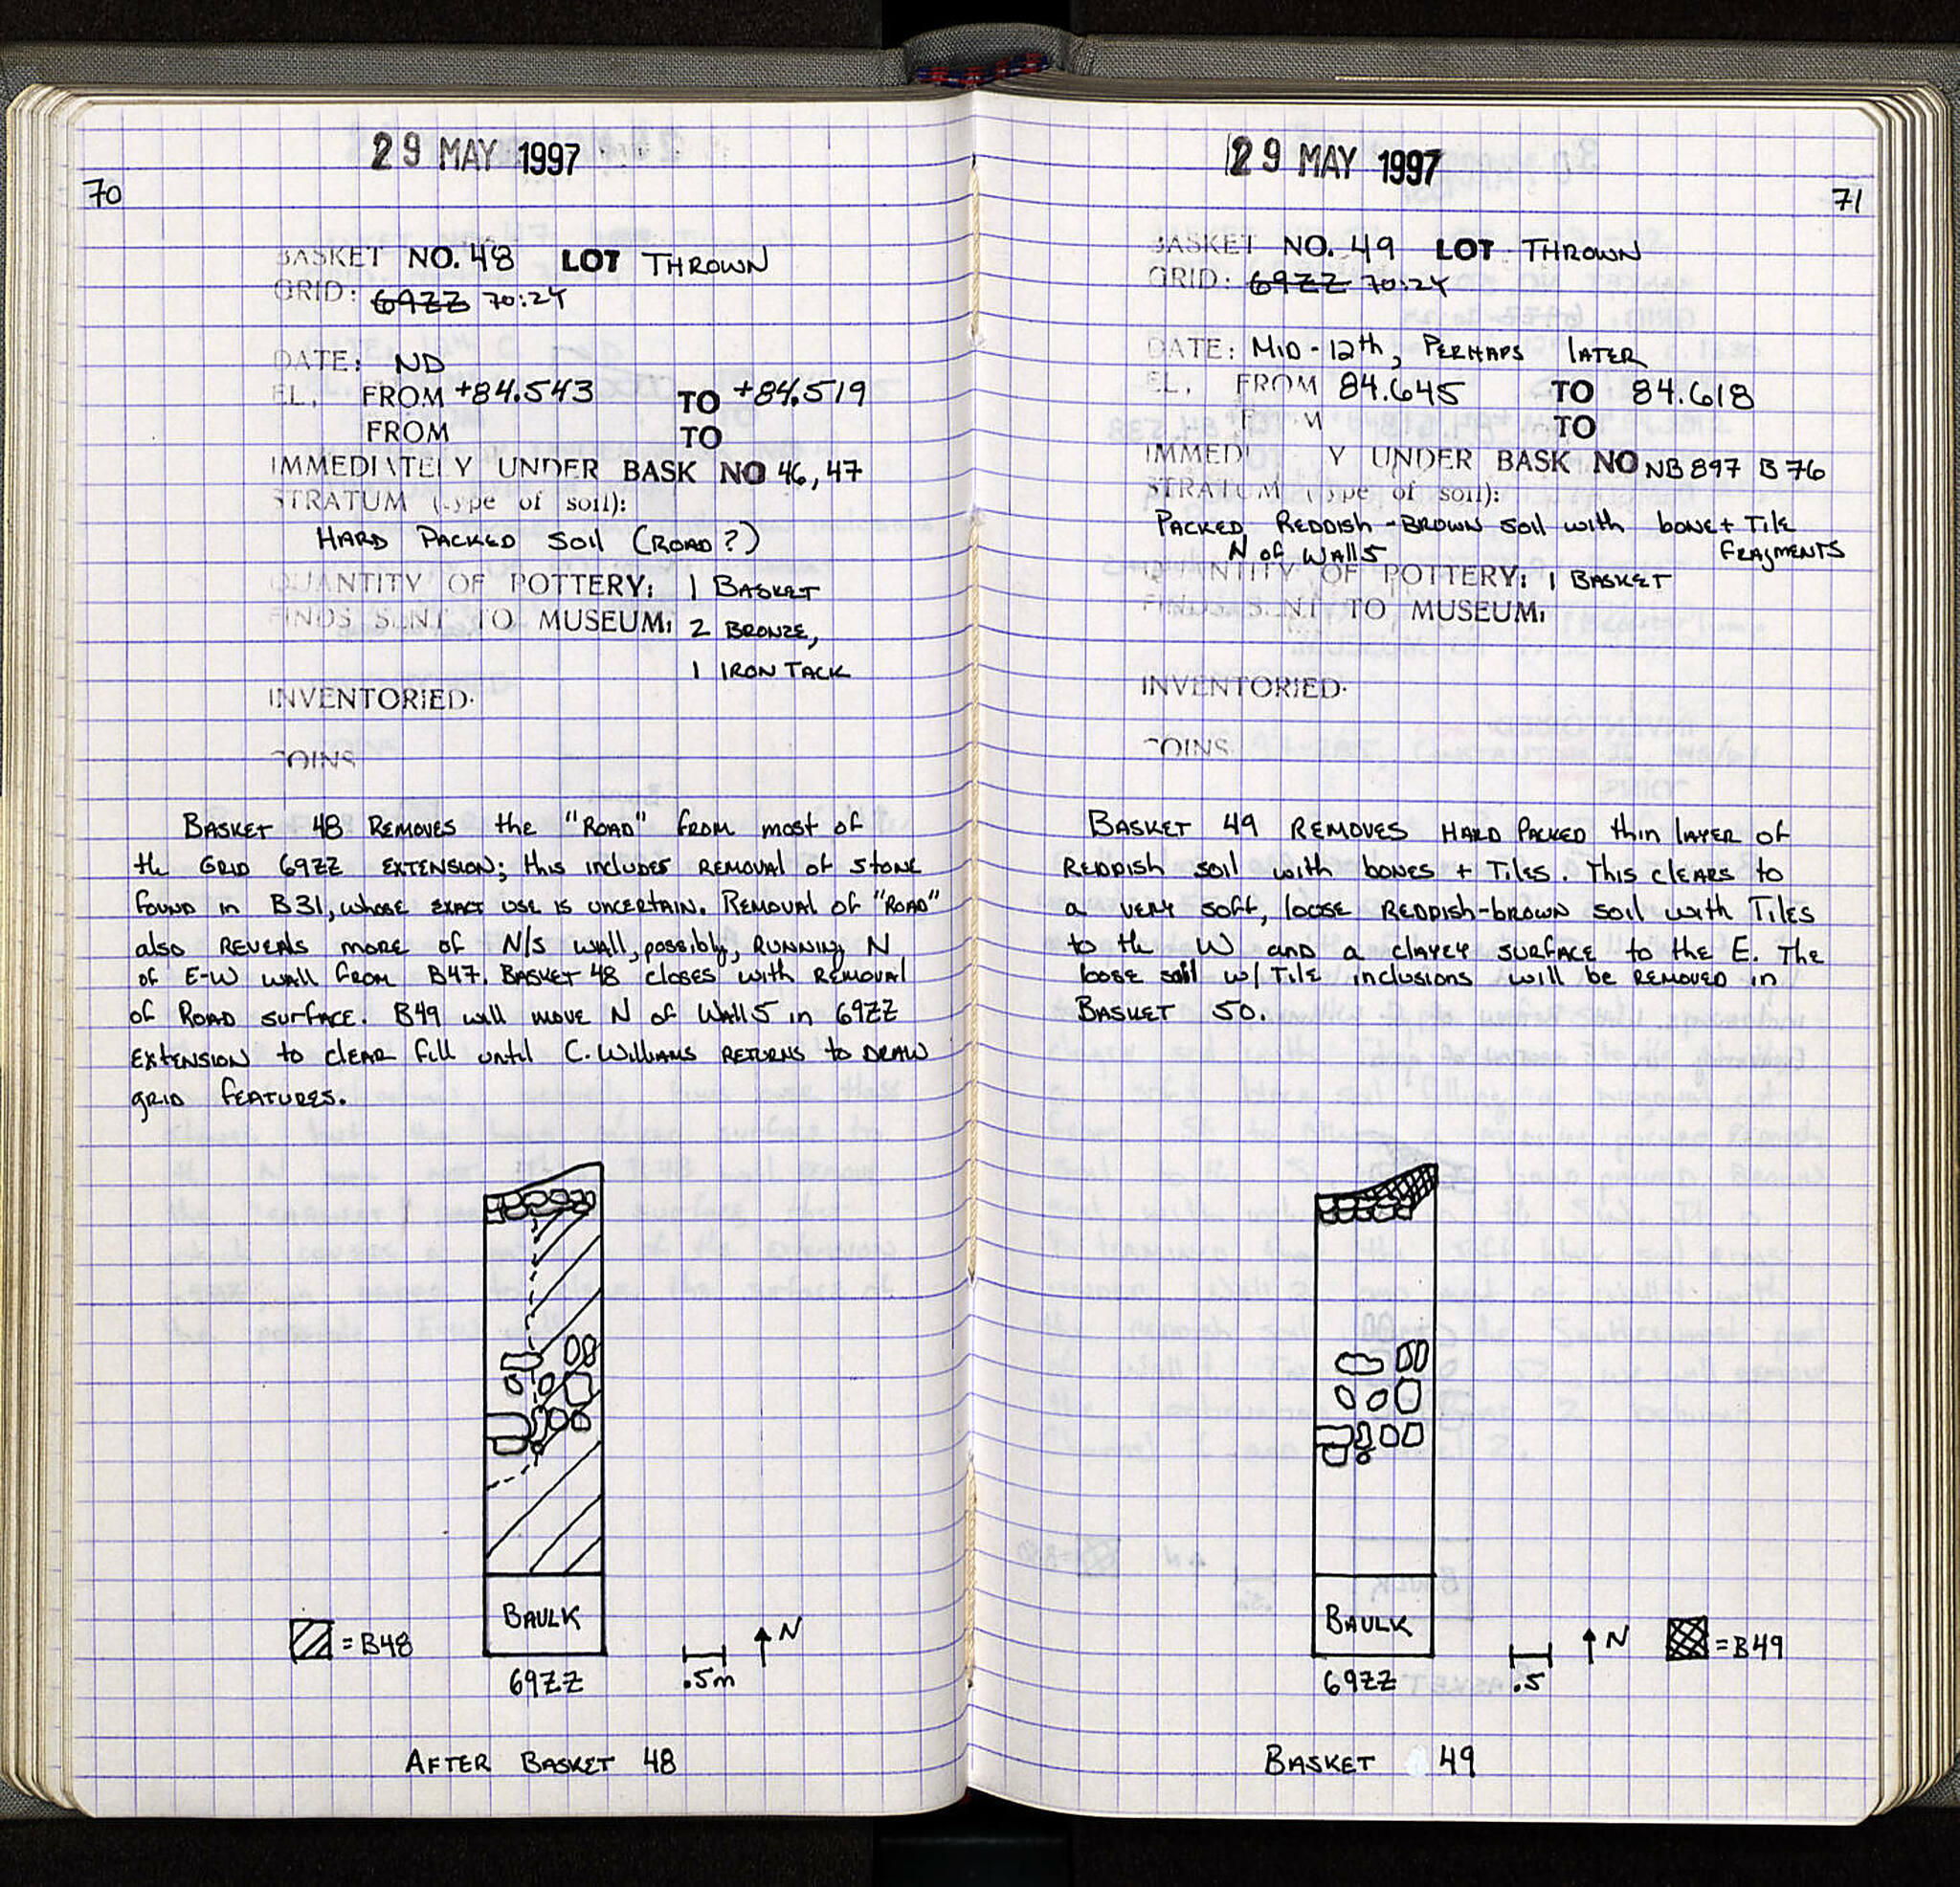 29 MAY 1997
70
BASKET NO. 48 LOT THROWN
GRID: 69ZZ 70:2Y
DATE: ND
EL, FROM +84.543 TO +84.519
FROM TO
IMMEDIATELY UNDER BASK NO 46, 47
STRATUM (type of soil):
HARD PACKED SOIL (ROAD?)
QUANTITY OF POTTERY: 1 BASKET
FINDS SENT TO MUSEUM: 2 BRONZE,
1 IRON TACK
INVENTORIED.
COINS
BASKET 48 REMOVES the "ROAD" from most of
the GRID 69ZZ EXTENSION; this includes REMOVAL of STONE
found in B31, whose exact use is uncertain. Removal of "ROAD"
also REVEALS more of N/S wall, possibly, RUNNING N
of E-W wall from B47. BASKET 48 closes with REMOVAL
of Road surface. B49 will move N of Wall 5 in 69ZZ
EXTENSION to clear fill until C. Williams RETURNS to DRAW
grid features.
BAULK
= B48
N
69ZZ
.5m
AFTER BASKET 48
29 MAY 1997
71
BASKET NO. 49 LOT THROWN
GRID: 69ZZ 70:2Y
DATE: MID-12th, PERHAPS LATER
EL, FROM 84.645 TO 84.618
F M TO
IMMEDI Y UNDER BASK NO NB897 B76
STRATUM (type of soil):
PACKED REDDISH-BROWN soil with bone + Tile
N of Wall 5 FRAGMENTS
QUANTITY OF POTTERY: 1 BASKET
FINDS SENT TO MUSEUM:
INVENTORIED.
COINS
BASKET 49 REMOVES HARD PACKED thin layer of
REDDISH soil with bones + Tiles. This clears to
a very soft, loose REDDISH-brown soil with Tiles
to the W and a clayey surface to the E. The
loose soil w/ Tile inclusions will be REMOVED in
BASKET 50.
BAULK
N
= B49
69ZZ
.5
BASKET 49